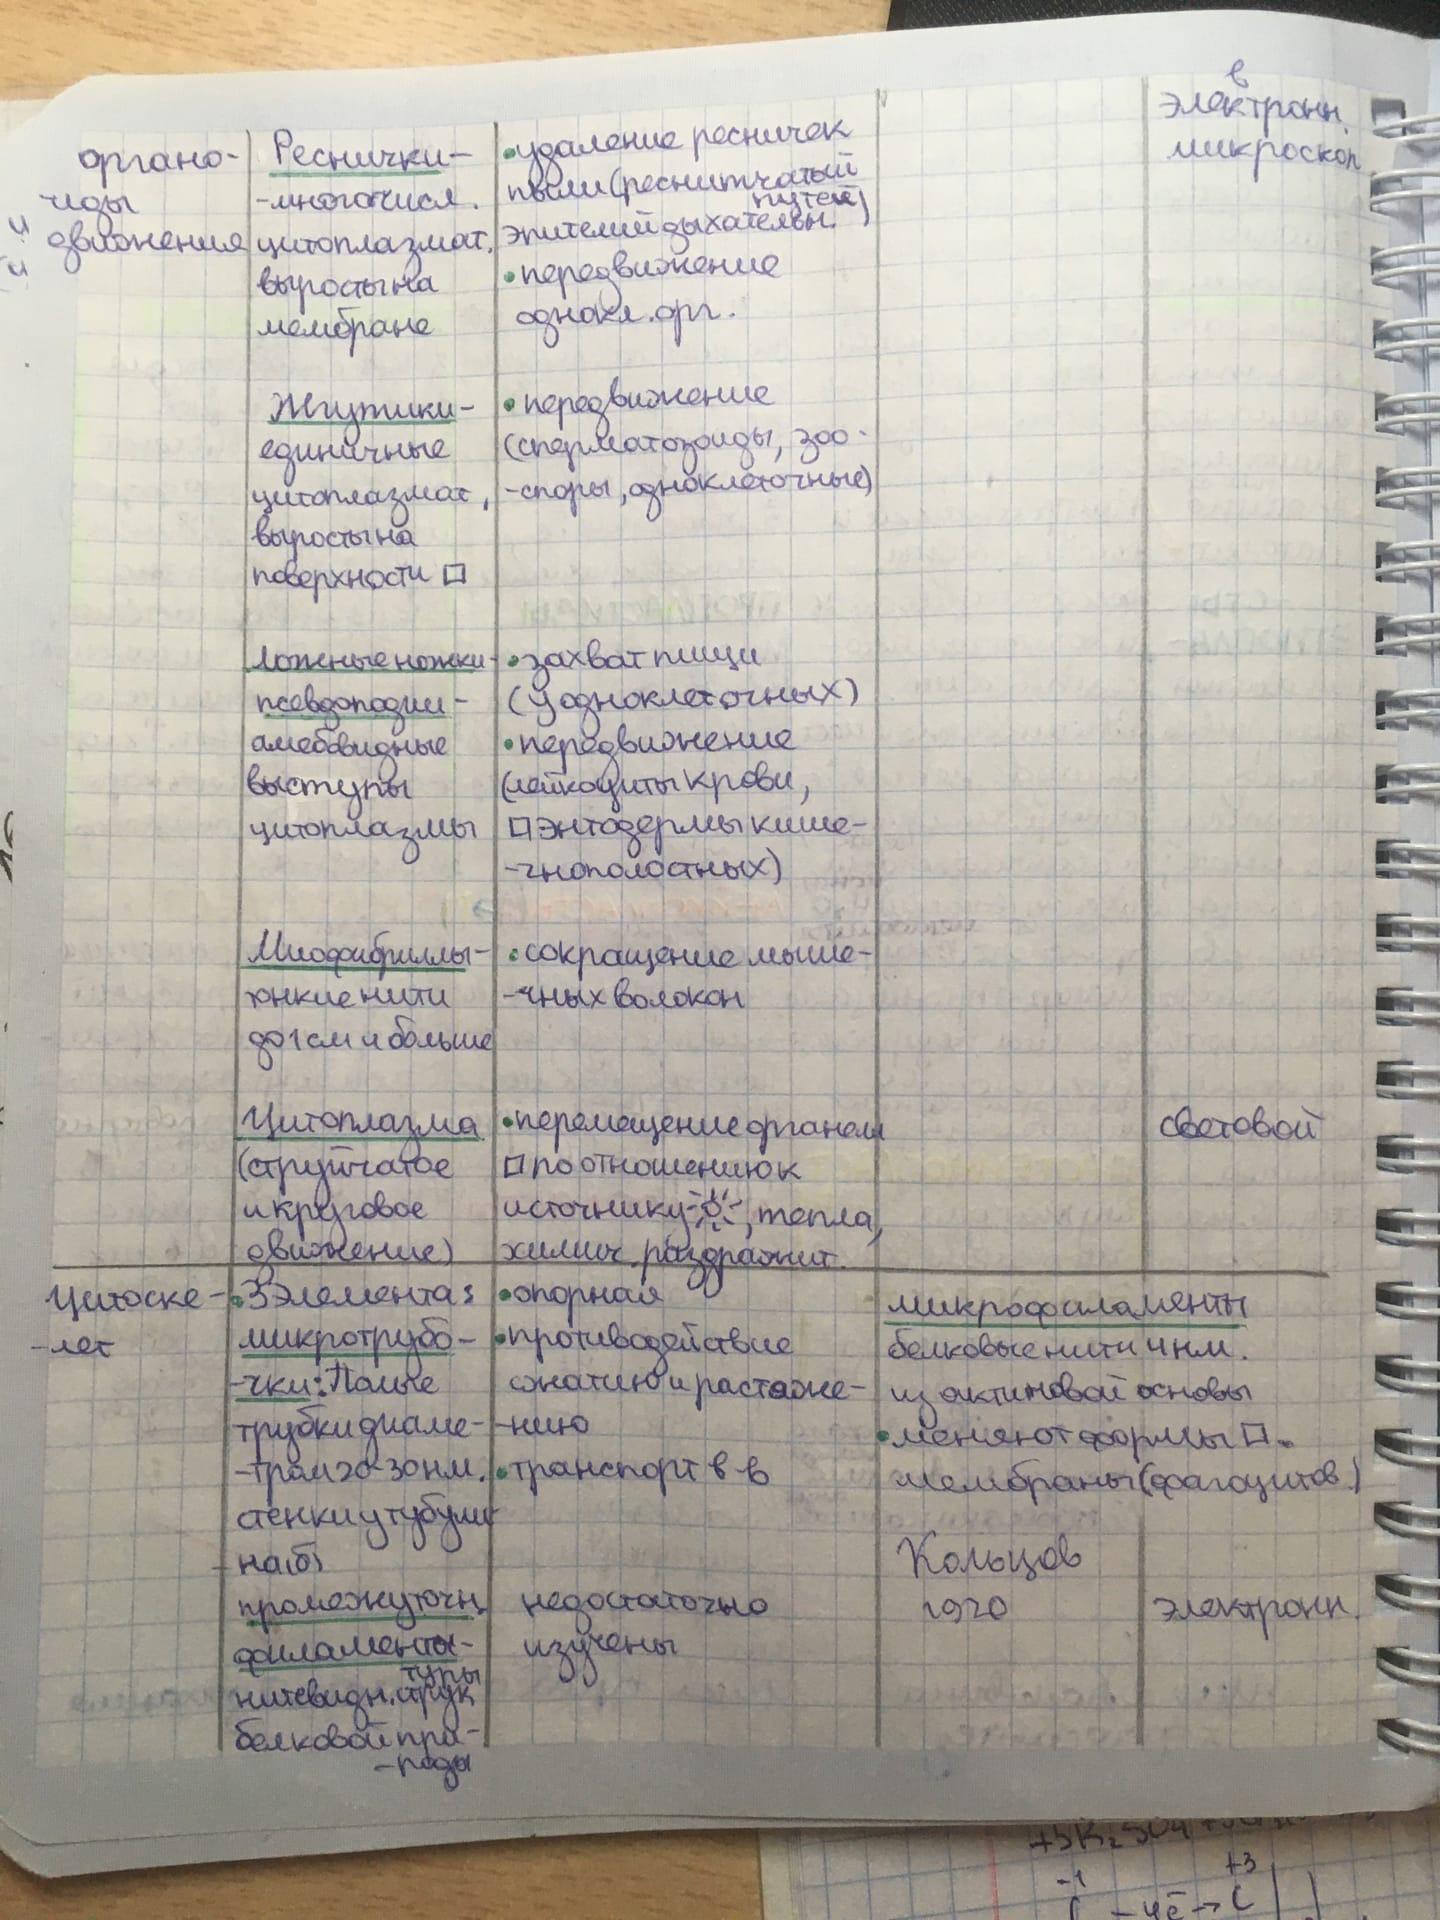 в
электронн.
микроскоп
органо-
иды
движения
Реснички-
-многочисл.
цитоплазмат.
выросты на
мембране
•удаление ресничек
пыли (реснитчатый
путей)
эпителий дыхательн.
•передвижение
однокл. орг.
Жгутики-
единичные
цитоплазмат,
выросты на
поверхности □
•передвижение
(сперматозоиды, зоо-
-споры, одноклеточные)
ложные ножки-
псевдоподии-
амебовидные
выступы
цитоплазмы
•захват пищи
(у одноклеточных)
•передвижение
(лейкоциты крови,
□ энтодермы кише-
-чнополостных)
Миофибриллы-
тонкие нити
до 1 см и больше
•сокращение мыше-
-чных волокон
Цитоплазма
(струйчатое
и круговое
движение)
•перемещение органелл
□ по отношению к
источнику ☼, тепла,
химич. раздражит.
световой
Цитоске-
-лет
•3 элемента:
микротрубо-
-чки: Полые
трубки диаме-
-тром 20-30 нм.
стенки у тубули
на(б)
промежуточн.
филаменты-
туры
нитевидн. струк
белковой при-
-роды
•опорная
•противодействие
сжатию и растяже-
-нию
•транспорт в-в
недостаточно
изучены
микрофиламенты
белковые нити 4 нм.
из актиновой основы
•меняют формы □.
мембраны (фагоцитов)
Кольцов
1920
электронн.
-1
+3
C -4ē → C